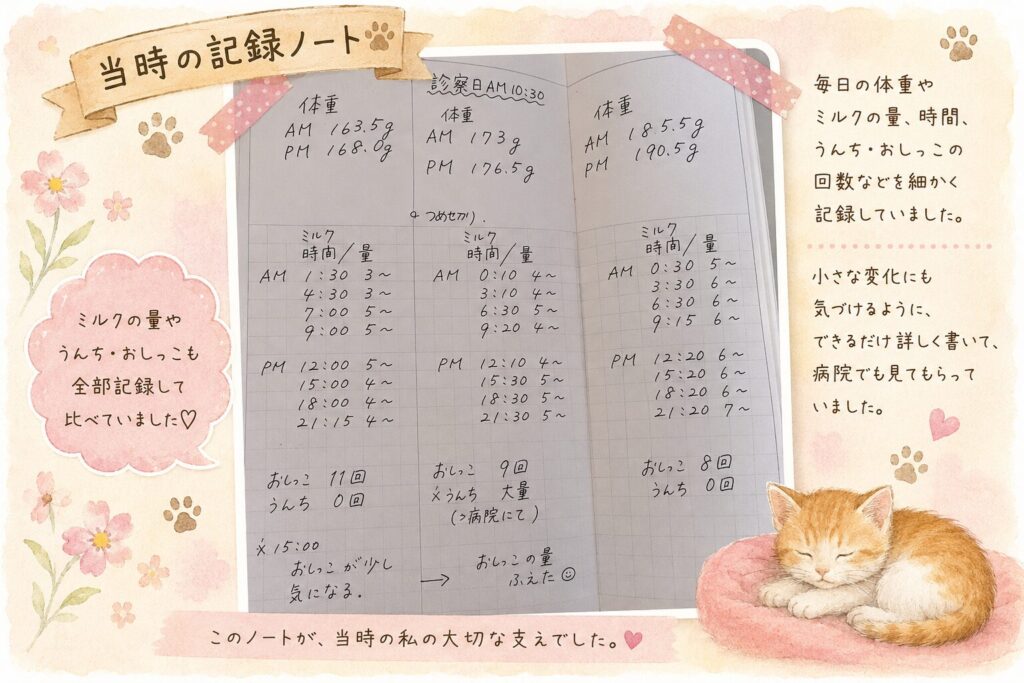 当時の記録ノート
体重
AM 163.5g
PM 168.0g
診察日AM10:30
体重
AM 173g
PM 176.5g
体重
AM 185.5g
PM 190.5g
つめせカリ.
ミルク
時間/量
AM 1:30 3~
4:30 3~
7:00 5~
9:00 5~
PM 12:00 5~
15:00 4~
18:00 4~
21:15 4~
おしっこ 11回
うんち 0回
※15:00
おしっこが少し
気になる.
ミルク
時間/量
AM 0:10 4~
3:10 4~
6:30 5~
9:20 4~
PM 12:10 4~
15:30 5~
18:30 5~
21:30 5~
おしっこ 9回
※うんち 大量
(っ病院にて)
→ おしっこの量
ふえた☺
ミルク
時間/量
AM 0:30 5~
3:30 6~
6:30 6~
9:15 6~
PM 12:20 6~
15:20 6~
18:20 6~
21:20 7~
おしっこ 8回
うんち 0回
毎日の体重や
ミルクの量、時間、
うんち・おしっこの
回数などを細かく
記録していました。
小さな変化にも
気づけるように、
できるだけ詳しく書いて、
病院でも見てもらって
いました。
ミルクの量や
うんち・おしっこも
全部記録して
比べていました♡
このノートが、当時の私の大切な支えでした。♥